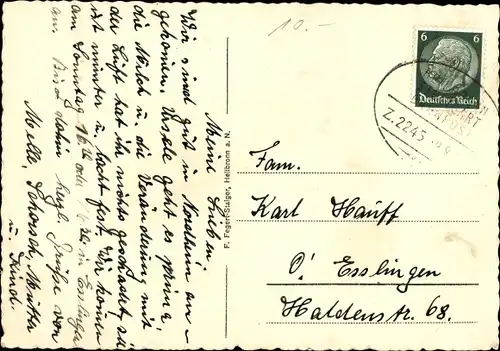 10.-
Meine Lieben
Wir sind gut in Nordheim an-
gekommen. Ursele geht es prima,
die Milch u. die Veränderung mit
der Luft hat ihr nichts geschadet, sie
ist munter u. lacht fest. Wir kommen
am Sonntag in Esslingen
an. Bis dahin herzl. Grüße von
Melle, Schorsch, Mutter
u. Kind.
F. Fegert-Staiger, Heilbronn a. N.
6 6
Deutsches Reich
Z. 2245
Fam.
Karl Hauff
O! Esslingen
Haldenstr. 68.